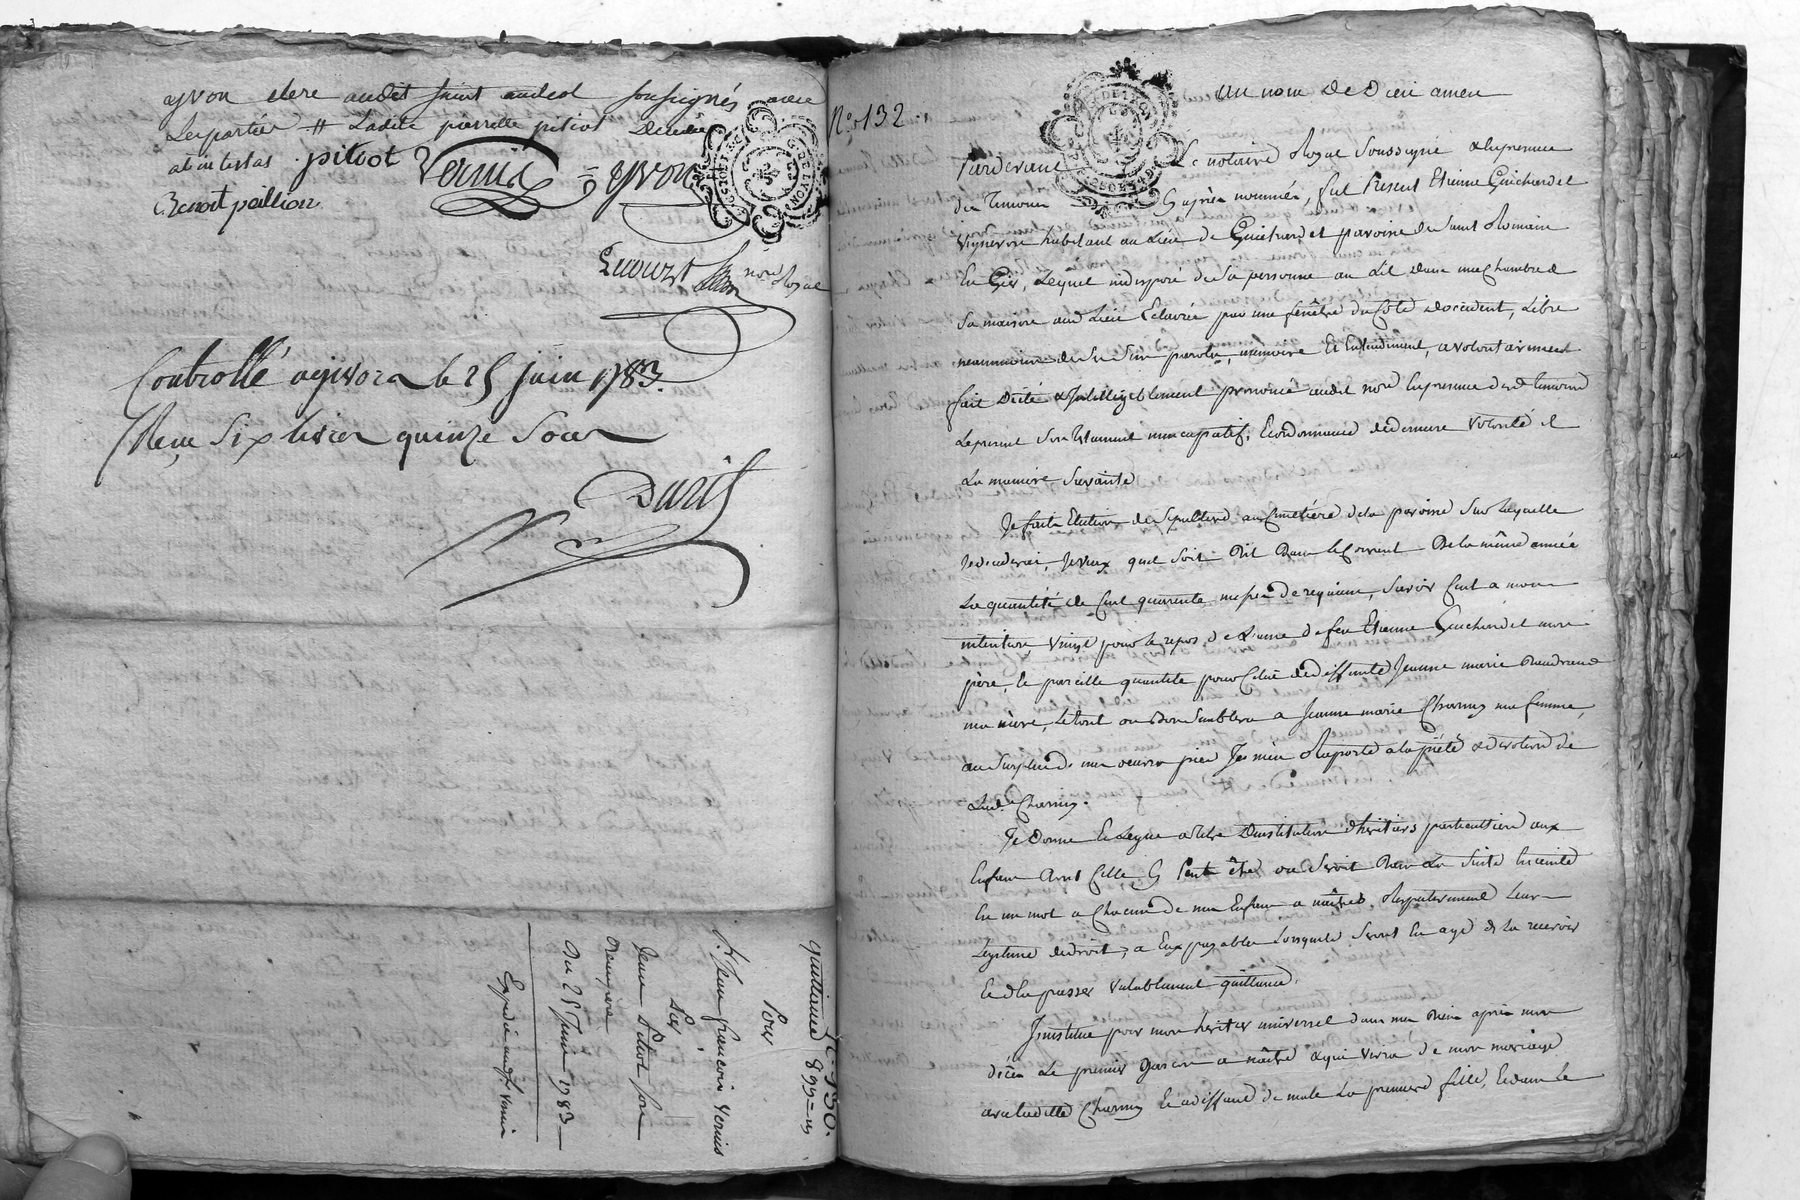 yvon clerc audit saint andeol soussignés avec
les parties # ladite pierrette pitiot decedée
abintestat pitiot Vernis yvon
Benoit paillion
not Royal
Controllé a givors le 25 juin 1783.
Reçu six livres quinze sous
Duril
quittance 895
Pour
Sr Jean francois Vernis
Les
Jeanne Pitiot son
Du 25 Juin 1783
Expedié aud. Sr. Vernis
N.o 132
Au nom de Dieu amen
Pardevant Le notaire Royal Soussigné & En presence
des Temoins Cy après nommés, fut Present Etienne Guichardet
vigneron habitant au Lieu de Guichardet paroisse de Saint Romain
En Gier, Lequel indisposé de sa personne au Lit dans une Chambre de
sa maison aud Lieu Eclairée par une fenêtre du Côté d'occident, Libre
neanmoins de ses Sens parole, memoire Et Entendement, a volontairement
fait Dicté & Intelligiblement prononcé audit no.re En presence desd. Temoins
Le present Son testament nuncupatif, Et ordonnance de derniere volonté de
La maniere Suivante
Je fais Election de Sepulture au Cimetière de la paroisse Sur laquelle
Je decederai, Je veux quil Soit Dit Dans le Courant De la même année
La quantité de Cent quarante messes de requiem, Savoir Cent a mon
intention, vingt pour le repos de L'ame de feu Etienne Guichardet mon
père, & pareille quantité pour Celui de deffunte Jeanne marie
ma mère, Le tout ou Bon Semblera a Jeanne marie Charmy ma femme,
au Surplus de mes oeuvres pies Je m'en Raporte a la piété & devotion de
Lad. Charmy.
Je Donne Et Legue a titre D'institution d'heritiers particulliers aux
Enfans dont Elle Est Peut être ou Seroit Dans La Suite Enceinte
En un mot a Chacun de mes Enfans a naître Respectivement Leur
Legitime de droit, a Eux payable Lorsquils Seront En age de la recevoir
Et d'En passer valablement quittance.
J'institue pour mon heritier universel dans mes Biens après mon
décès Le premier Garçon a naître & qui vivra de mon mariage
avec ladite Charmy Et a deffaut de male La premiere fille, Et dans le